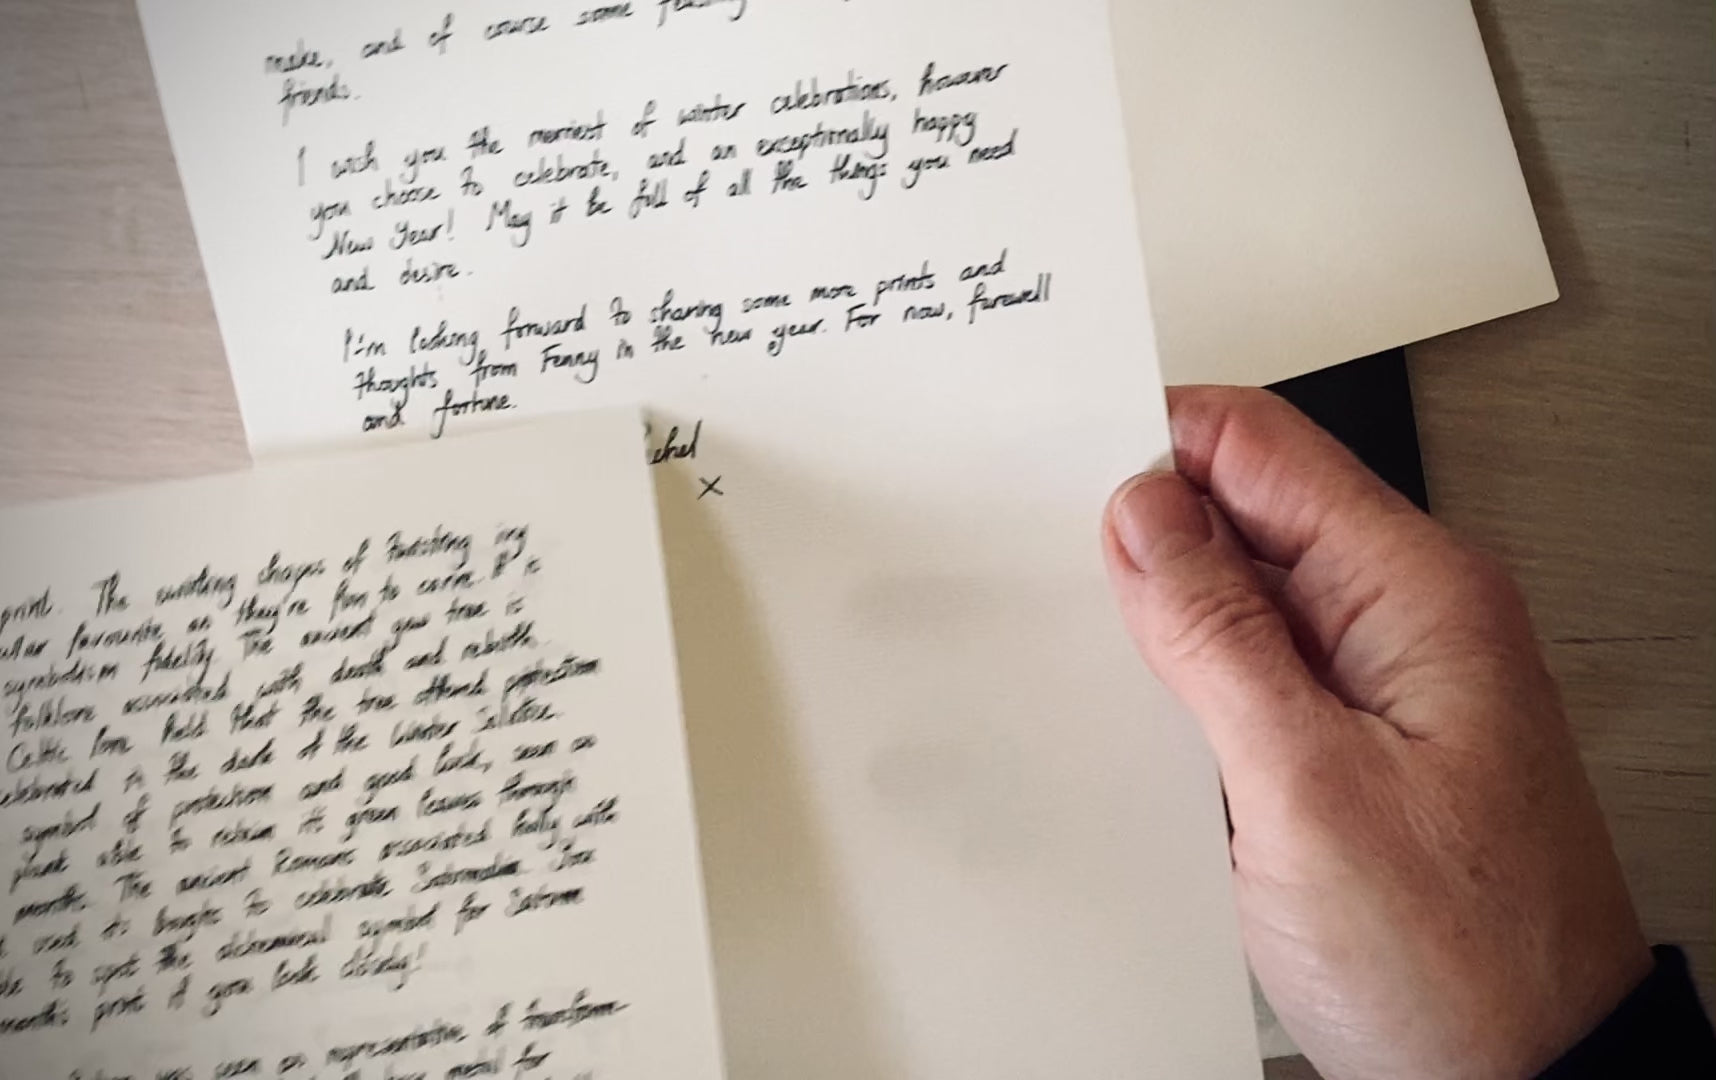 make, and of course some
friends.
I wish you the merriest of winter celebrations, however
you choose to celebrate, and an exceptionally happy
New Year! May it be full of all the things you need
and desire.
I'm looking forward to sharing some more prints and
thoughts from Fenny in the new year. For now, farewell
and fortune.
chel
x
print. The swirling shapes of twisting ivy
favourite as they're fun to carve. It is
symbolism fidelity. The ancient yew tree is
folklore associated with death and rebirth.
Celtic lore held that the tree offered protection
celebrated in the dark of the Winter Solstice.
symbol of protection and good luck, seen as
plant able to retain its green leaves through
months. The ancient Romans associated holly with
used its boughs to celebrate Saturnalia. You
to spot the alchemical symbol for Saturn
month's print if you look closely!
was seen as representative of transform-
metal for